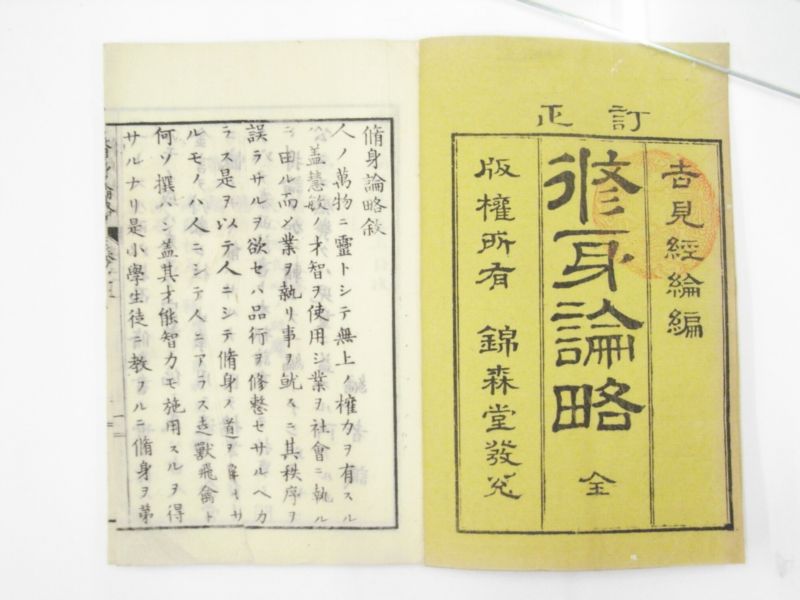 訂正
吉見經綸編
修身論略 全
版權所有 錦森堂發兌
脩身論略敘
人ノ萬物ニ靈トシテ無上ノ權力ヲ有スル
盖慧敏ノ才智ヲ使用シ業ヲ社會ニ執ル
ニ由ル而〆業ヲ執リ事ヲ就スニ其秩序ヲ
誤ラサルヲ欲セハ品行ヲ修整セサルヘカ
ラス是ヲ以テ人ニシテ脩身ノ道ヲ
ルモノハ人ニシテ人ニアラス走獸飛禽ト
何ソ撰ハン盖其才能智力モ施用スルヲ得
サルナリ是小學生徒ニ教ヲルニ脩身ヲ第